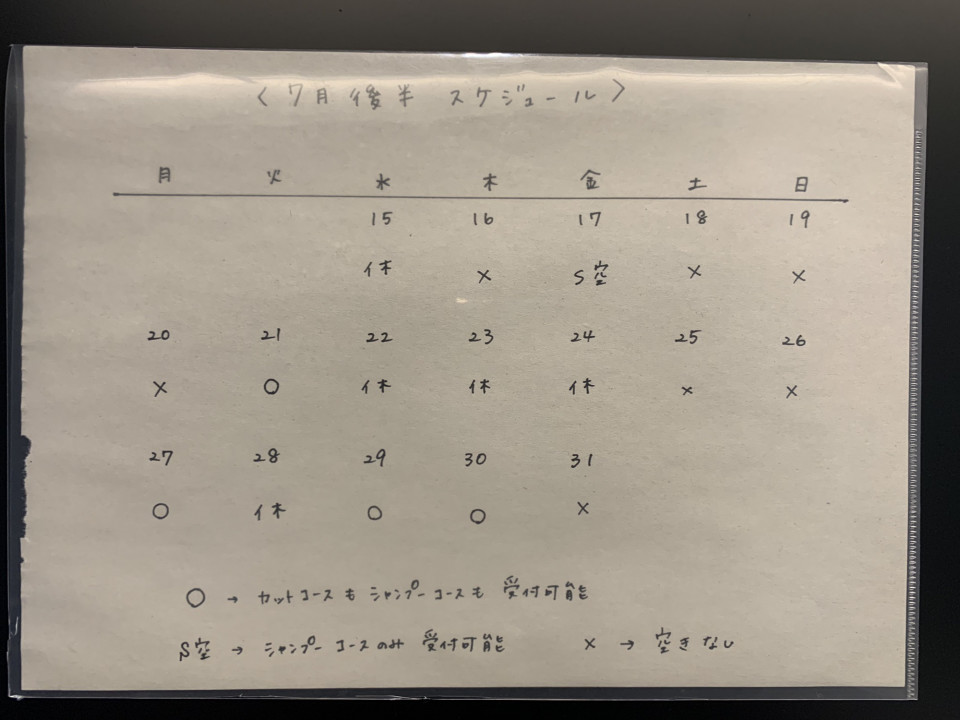 〈7月後半 スケジュール〉
月 火 水 木 金 土 日
15 16 17 18 19
休 × S空 × ×
20 21 22 23 24 25 26
× ○ 休 休 休 × ×
27 28 29 30 31
○ 休 ○ ○ ×
○ → カットコースも シャンプーコースも 受付可能
S空 → シャンプーコースのみ 受付可能 × → 空きなし